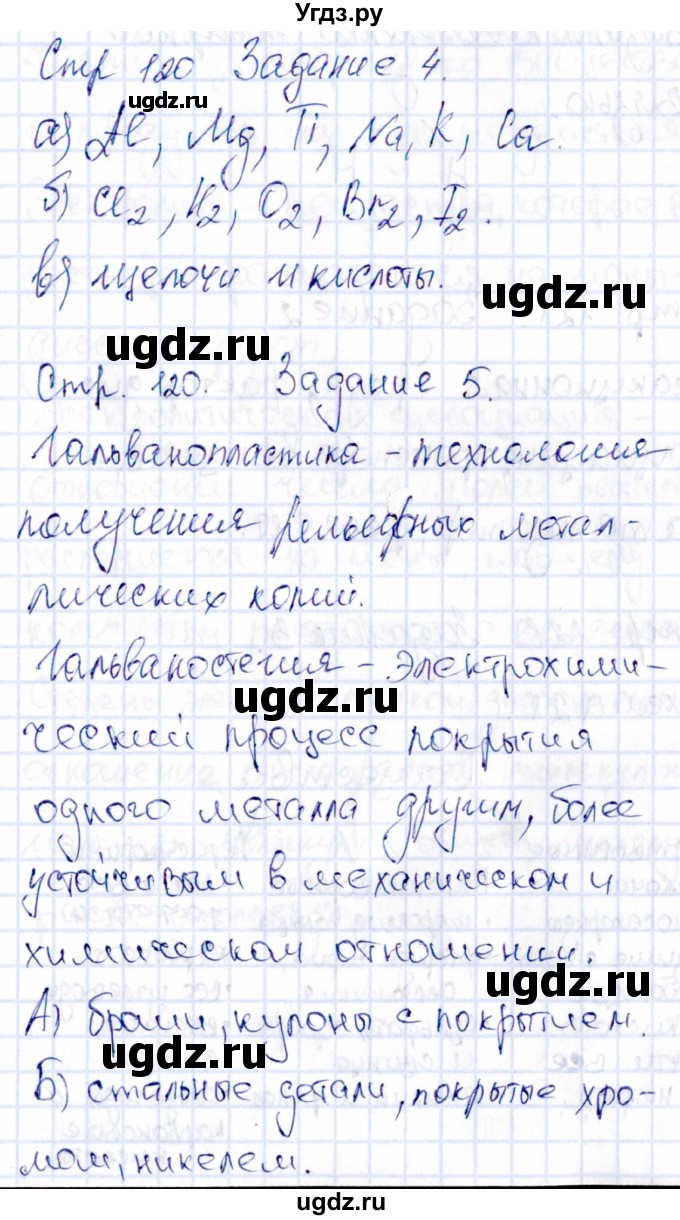 Угдз.ру
Стр 120 Задание 4.
ugdz.ru
а) Al, Mg, Ti, Na, K, Ca.
б) Cl2, H2, O2, Br2, I2.
в) щелочи и кислоты.
ugdz.ru
ugdz.ru
Стр. 120. Задание 5.
Гальванопластика – технология
получения рельефных метал-
лических копий.
Гальваностегия – электрохими-
ugdz.ru
ческий процесс покрытия
одного металла другим, более
устойчивым в механическом и
химическом отношении.
ugdz.ru
А) броши, кулоны с покрытием.
ugdz.ru
Б) стальные детали, покрытые хро-
мом, никелем.
ugdz.ru